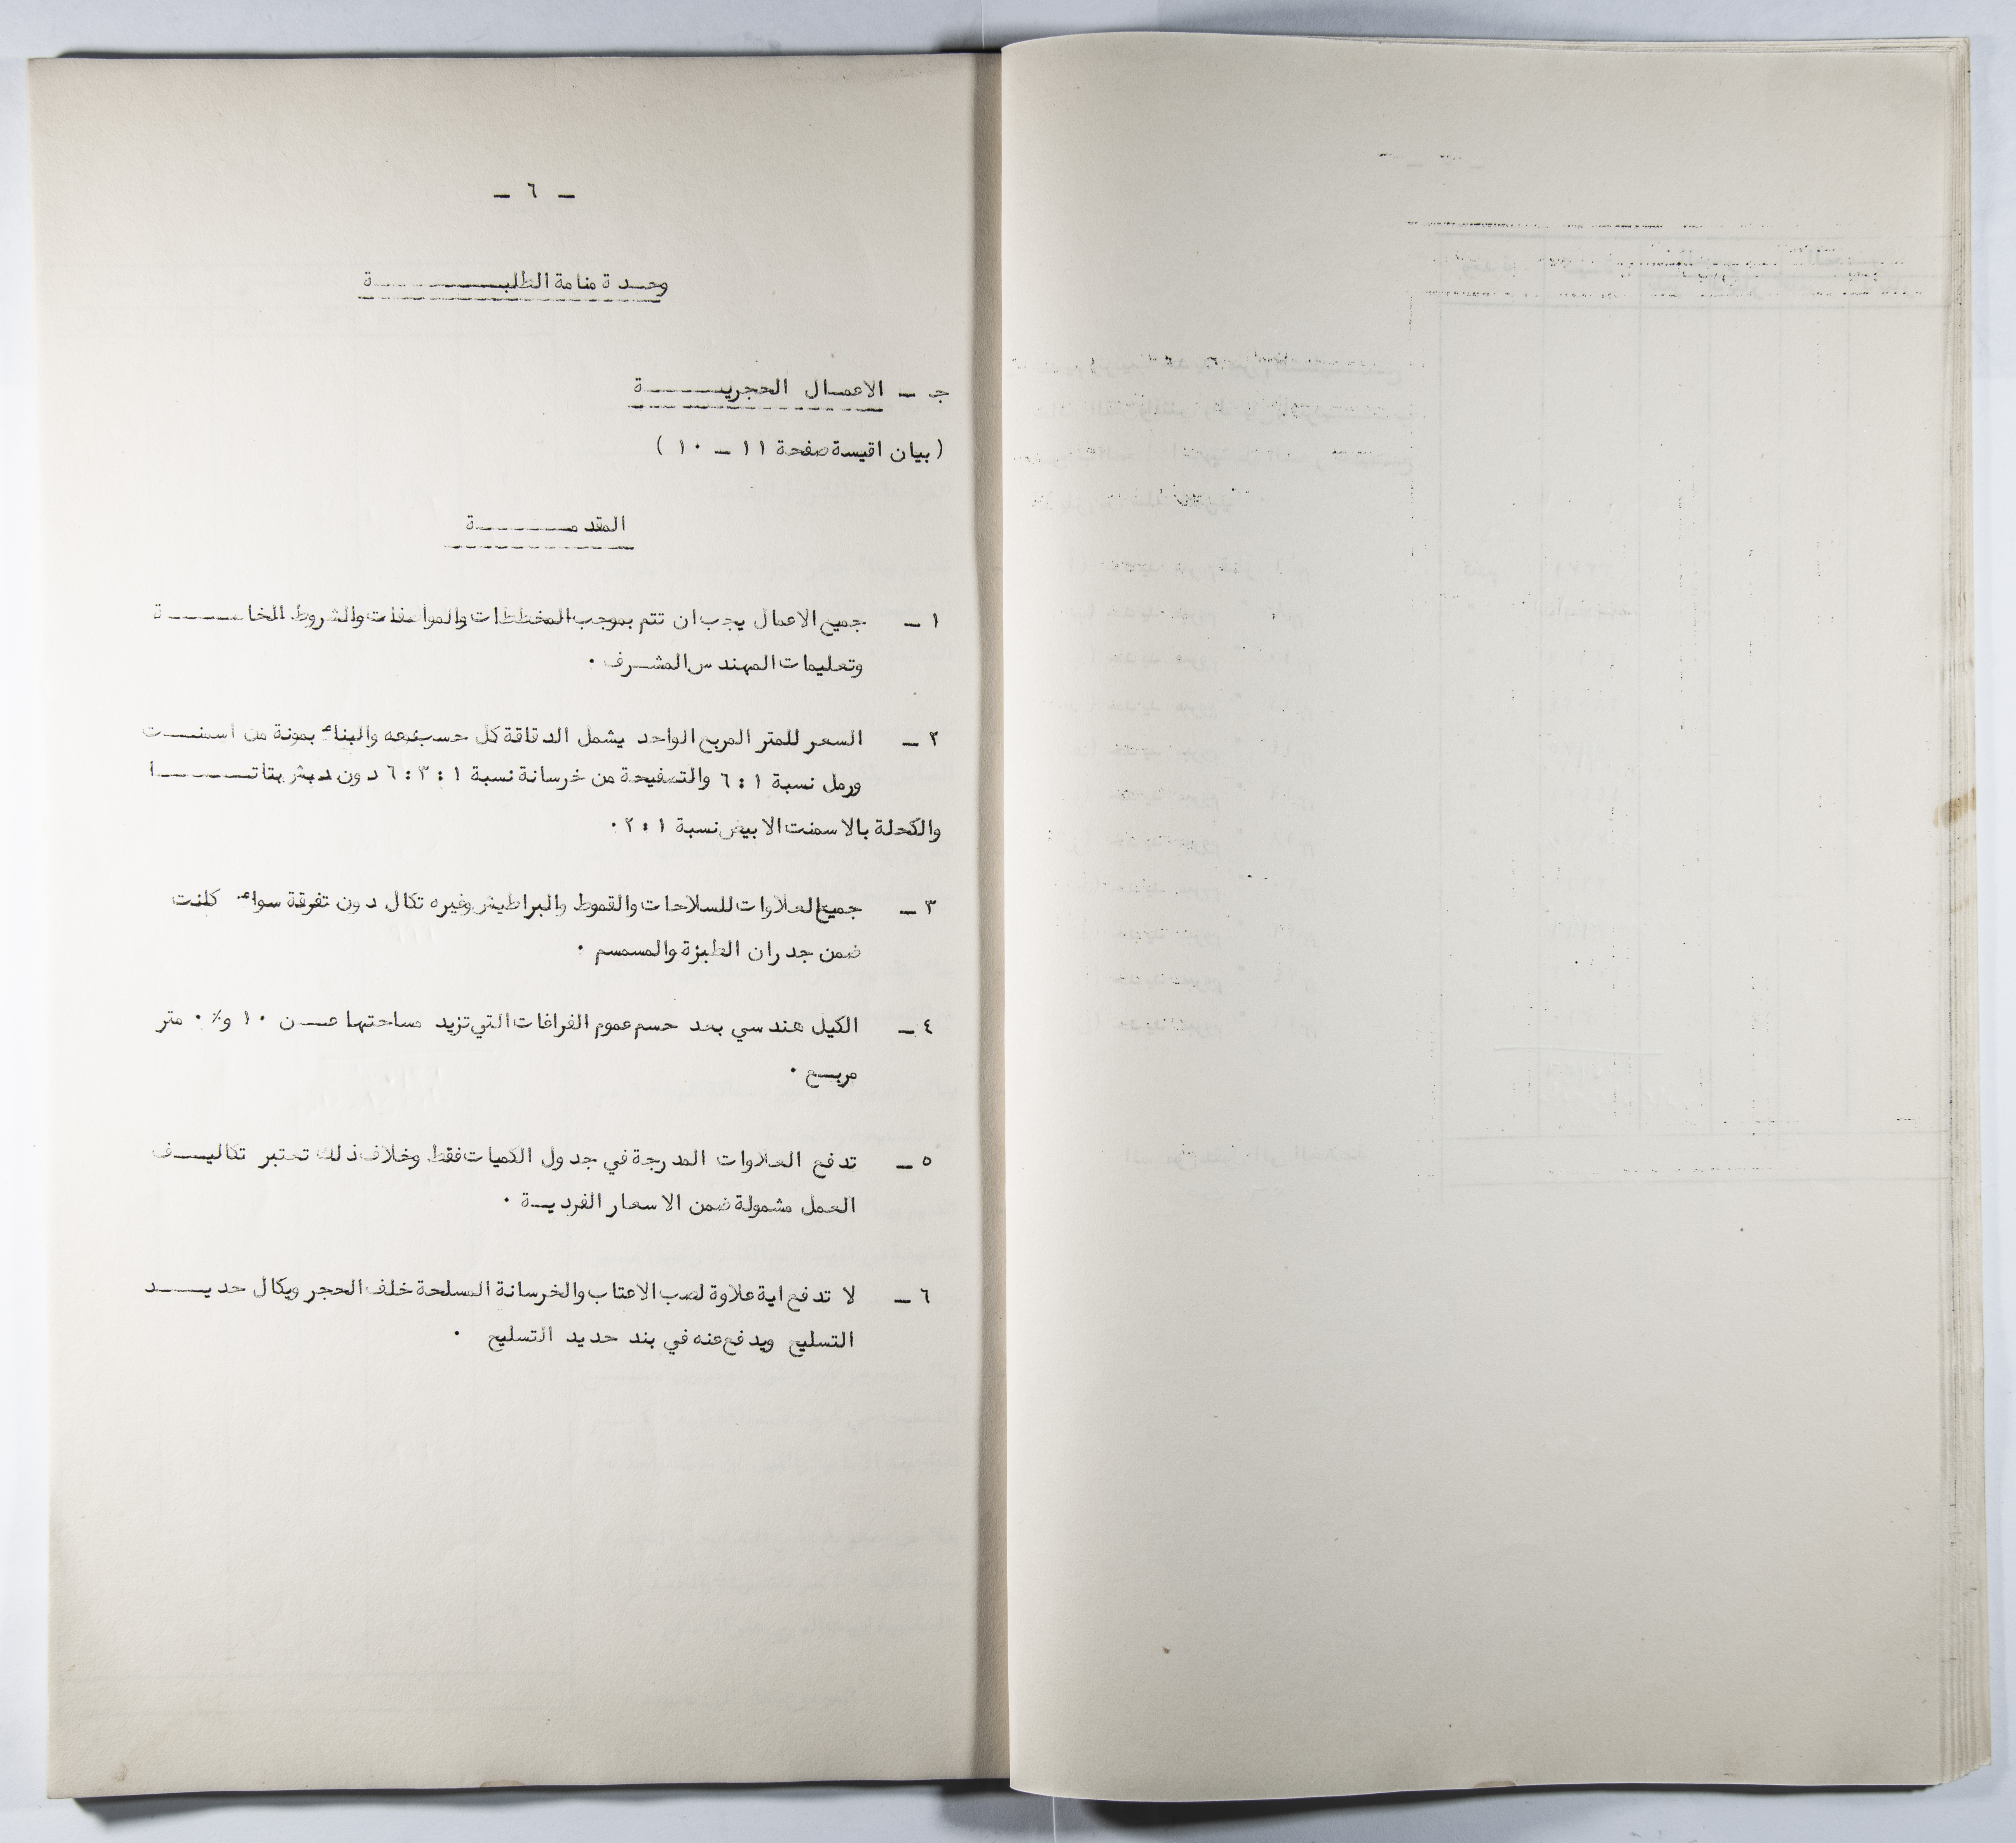 - ٦ -
وحدة منامة الطلبة
جـ - الاعمال الحجرية
(بيان اقيسة صفحة ١١ - ١٠)
المقدمة
١ - جميع الاعمال يجب ان تتم بموجب المخططات والمواصفات والشروط الخاصة
وتعليمات المهندس المشرف ٠
٢ - السعر للمتر المربع الواحد يشمل الدقاقة كل حسب نوعه والبناء بمونة من اسمنت
ورمل نسبة ١ : ٦ والتصفيحة من خرسانة نسبة ١ : ٣ : ٦ دون دبش بتاتا
والكحلة بالاسمنت الابيض نسبة ١ : ٢ ٠
٣ - جميع العلاوات للسلاحات والقموط والبراطيش وغيره تكال دون تفرقة سواء كانت
ضمن جدران الطبزة والمسمسم ٠
٤ - الكيل هندسي بعد حسم عموم الفراغات التي تزيد مساحتها عن ١٠ و٪ ٠ متر
مربع ٠
٥ - تدفع العلاوات المدرجة في جدول الكميات فقط وخلاف ذلك تعتبر تكاليف
العمل مشمولة ضمن الاسعار الفردية ٠
٦ - لا تدفع اية علاوة لصب الاعتاب والخرسانة المسلحة خلف الحجر ويكال حديد
التسليح ويدفع عنه في بند حديد التسليح ٠